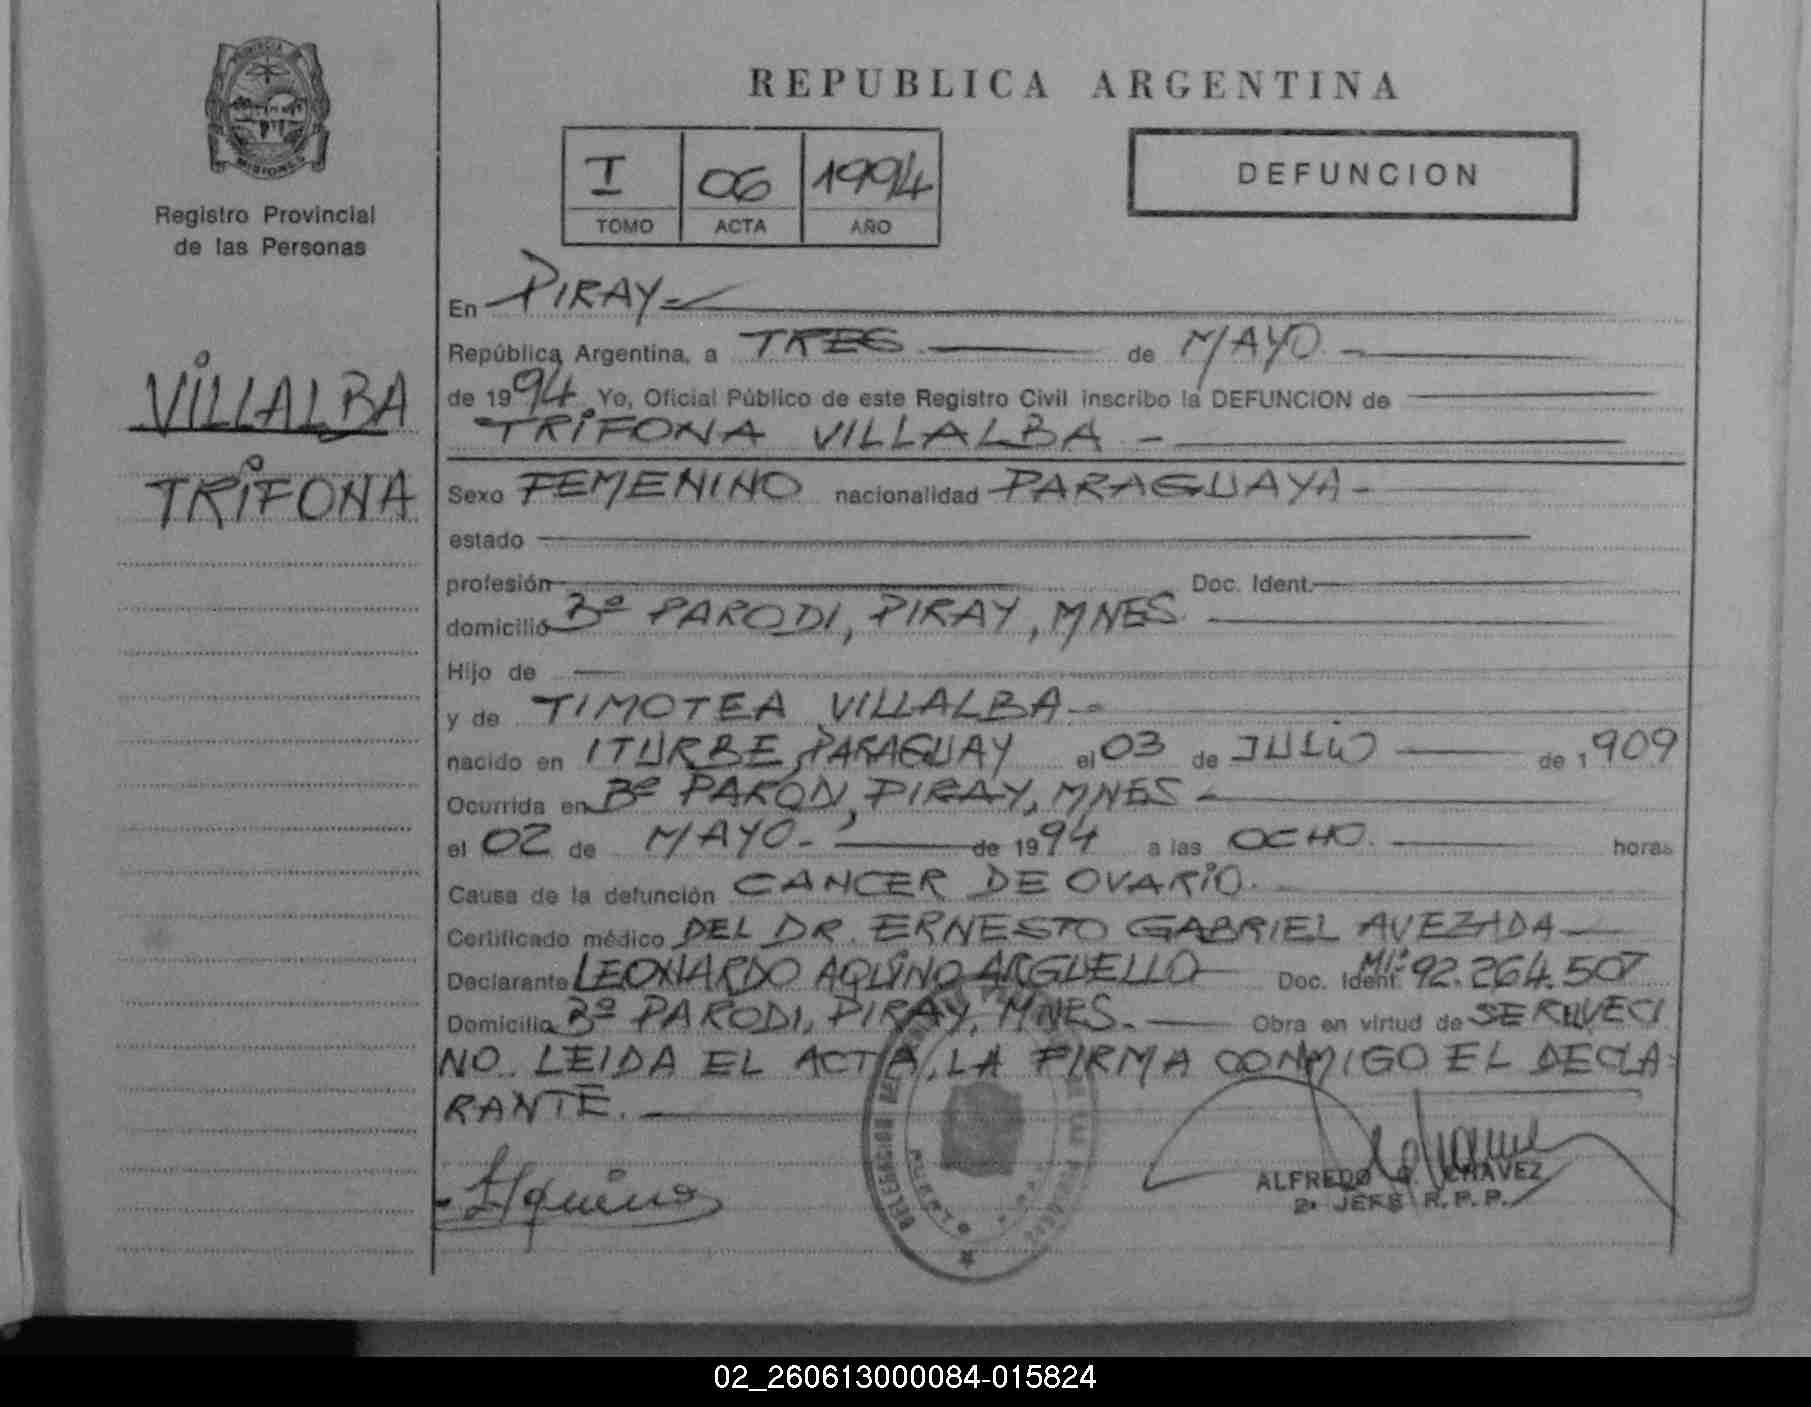 PROVINCIA
MISIONES
Registro Provincial
de las Personas
VILLALBA
TRIFONA
REPUBLICA ARGENTINA
I 06 1994
TOMO ACTA AÑO
DEFUNCION
En PIRAY
República Argentina, a TRES de MAYO
de 1994 Yo, Oficial Público de este Registro Civil inscribo la DEFUNCION de
TRIFONA VILLALBA
Sexo FEMENINO nacionalidad PARAGUAYA
estado
profesión Doc. Ident.
domicilio Bº PARODI, PIRAY, MNES
Hijo de
y de TIMOTEA VILLALBA
nacido en ITURBE, PARAGUAY el 03 de JULIO de 1909
Ocurrida en Bº PARODI, PIRAY, MNES
el 02 de MAYO de 1994 a las OCHO horas
Causa de la defunción CANCER DE OVARIO.
Certificado médico DEL DR. ERNESTO GABRIEL AVEZADA
Declarante LEONARDO AQUINO ARGUELLO Doc. Ident. MI: 92.264.507
Domicilio Bº PARODI, PIRAY, MNES. Obra en virtud de SER VECI
NO. LEIDA EL ACTA, LA FIRMA CONMIGO EL DECLA-
RANTE.
ALFREDO G. CHAVEZ
2º JEFE R.P.P.
02_260613000084-015824